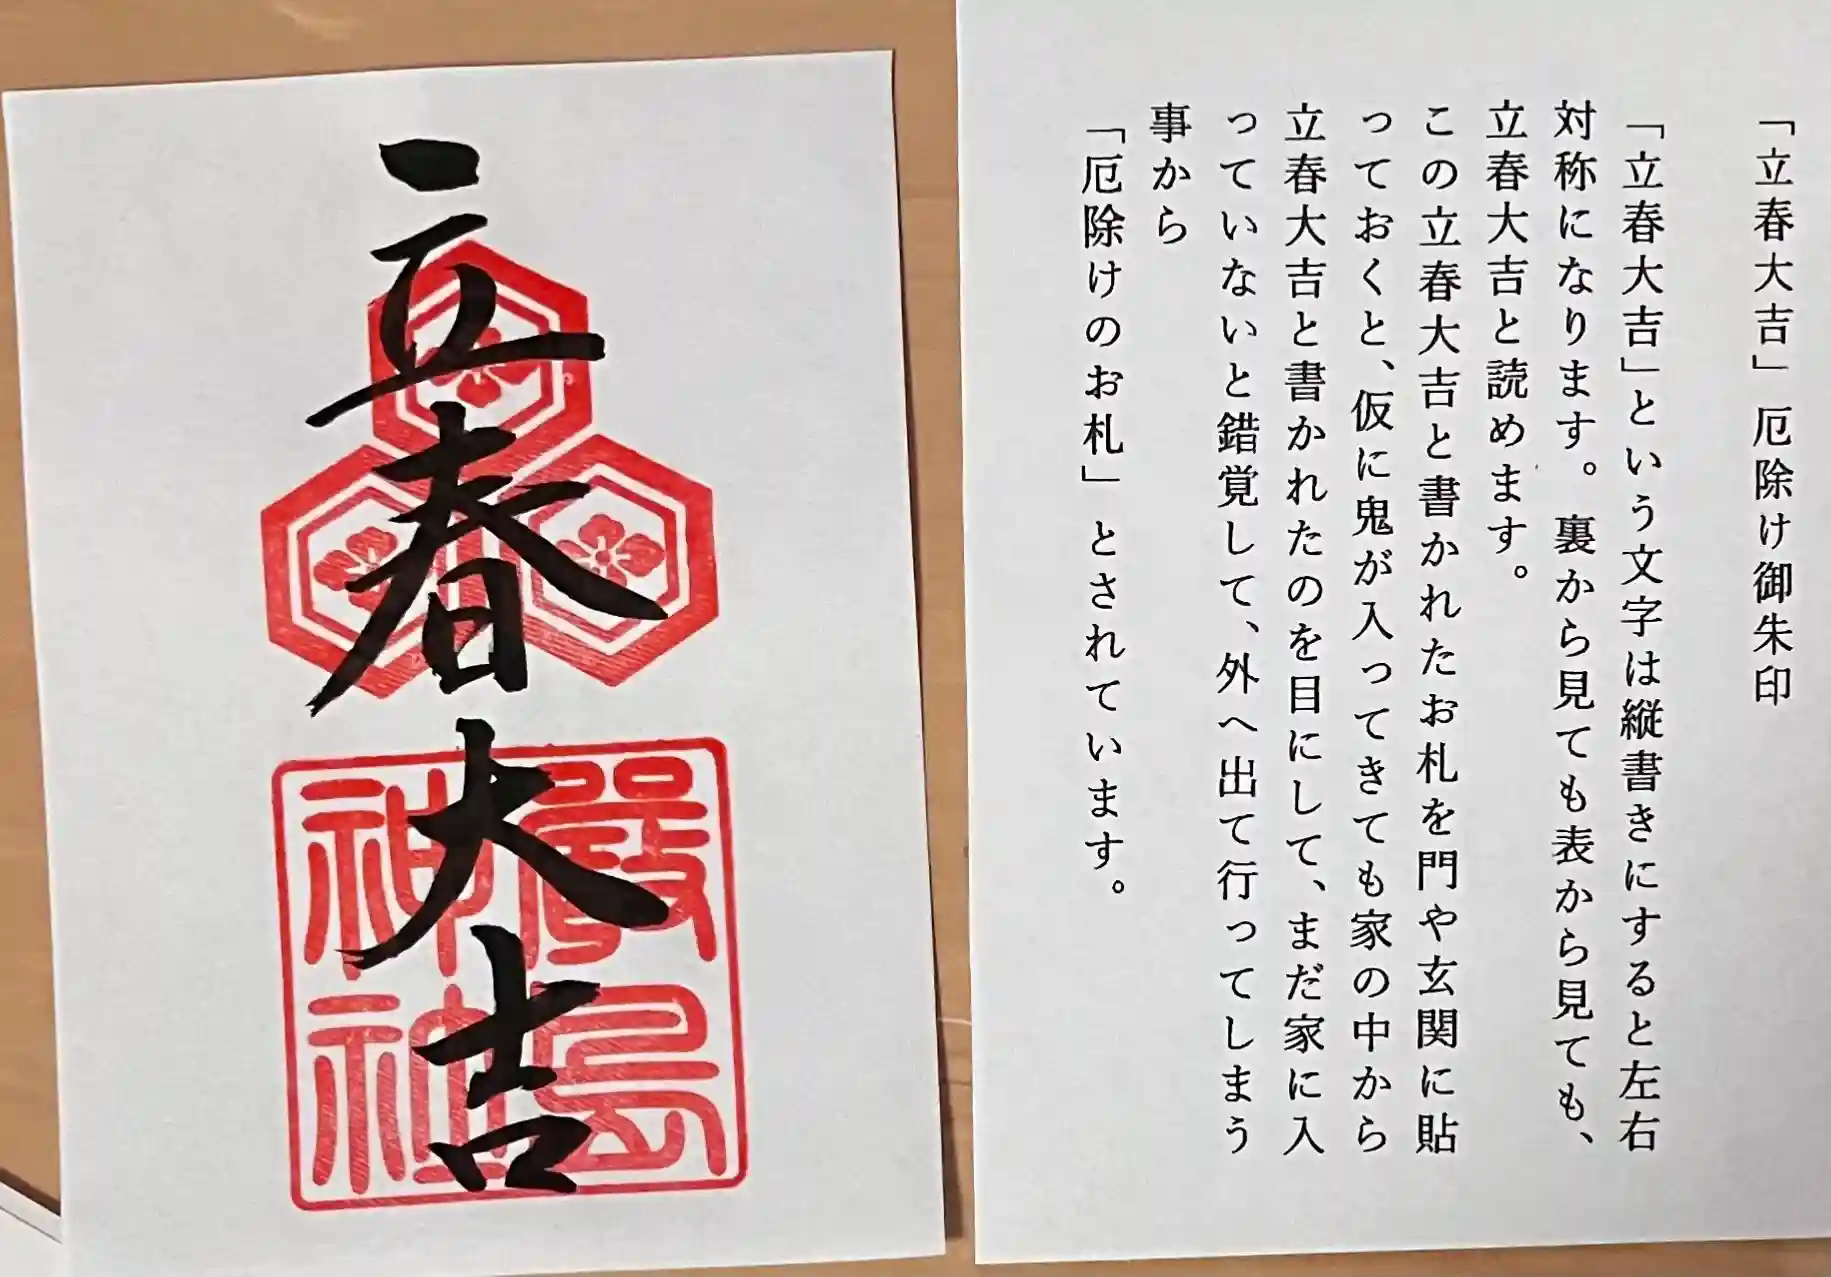 立春大吉
嚴島
神社
「立春大吉」厄除け御朱印
「立春大吉」という文字は縦書きにすると左右
対称になります。裏から見ても表から見ても、
立春大吉と読めます。
この立春大吉と書かれたお札を門や玄関に貼
っておくと、仮に鬼が入ってきても家の中から
立春大吉と書かれたのを目にして、まだ家に入
っていないと錯覚して、外へ出て行ってしまう
事から
「厄除けのお札」とされています。